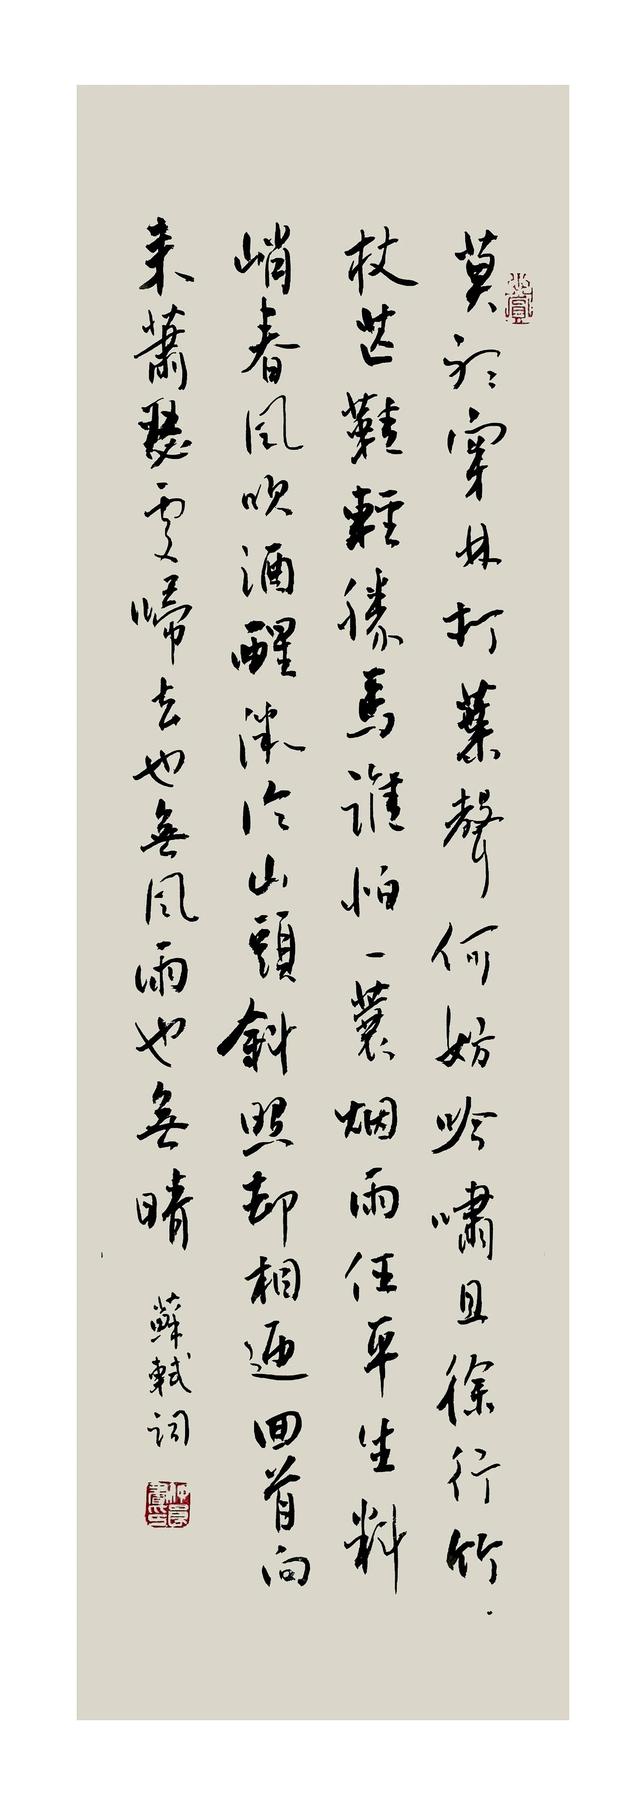 莫聽穿林打葉聲何妨吟嘯且徐行竹
杖芒鞋輕勝馬誰怕一蓑烟雨任平生料
峭春風吹酒醒微冷山頭斜照却相迎回首向
来蕭瑟處歸去也無風雨也無晴
蘇軾詞